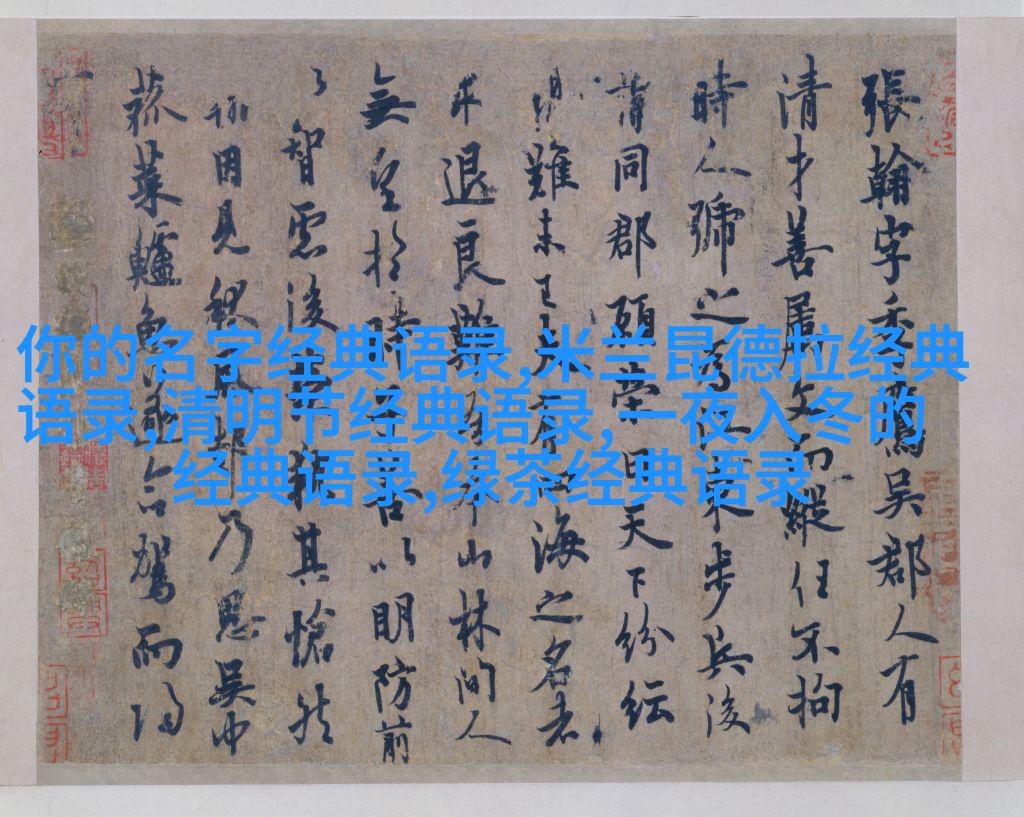 張翰字季鷹吳郡人有
清才善屬文而縱任不拘
時人號之為江東步兵後
謂同郡顧榮曰天下紛紜
難未已夫有四海之名者
求退良難吾本山林間人
無望於時子善以明防前
以智慮後榮執其愴然
翰因見秋風起乃思吳中
菰菜鱸魚遂命駕而歸
你的名字经典语录,米兰昆德拉经典
语录,清明节经典语录,一夜入冬的
经典语录,绿茶经典语录